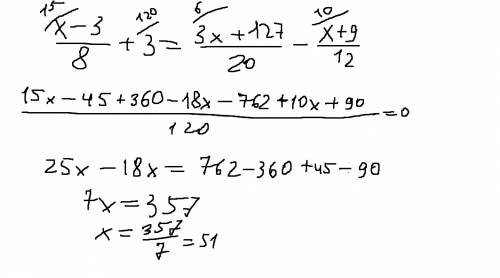 15 120 6 10
(x-3)/8 + 3 = (3x+127)/20 - (x+9)/12
(15x-45+360-18x-762+10x+90)/120 = 0
25x-18x = 762-360+45-90
7x = 357
x = 357/7 = 51